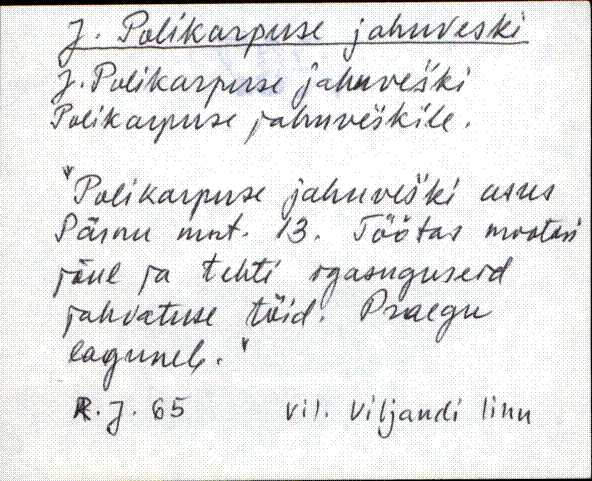 J. Polikarpuse jahuveski
J. Polikarpuse jahuveški
Polikarpuse jahuveškile.
"Polikarpuse jahuveški asus
Pärnu mnt. 13. Töötas mootori
jõul ja tehti igasuguseid
jahvatuse töid. Praegu
laguneb."
R. J. 65 Vil. Viljandi linn